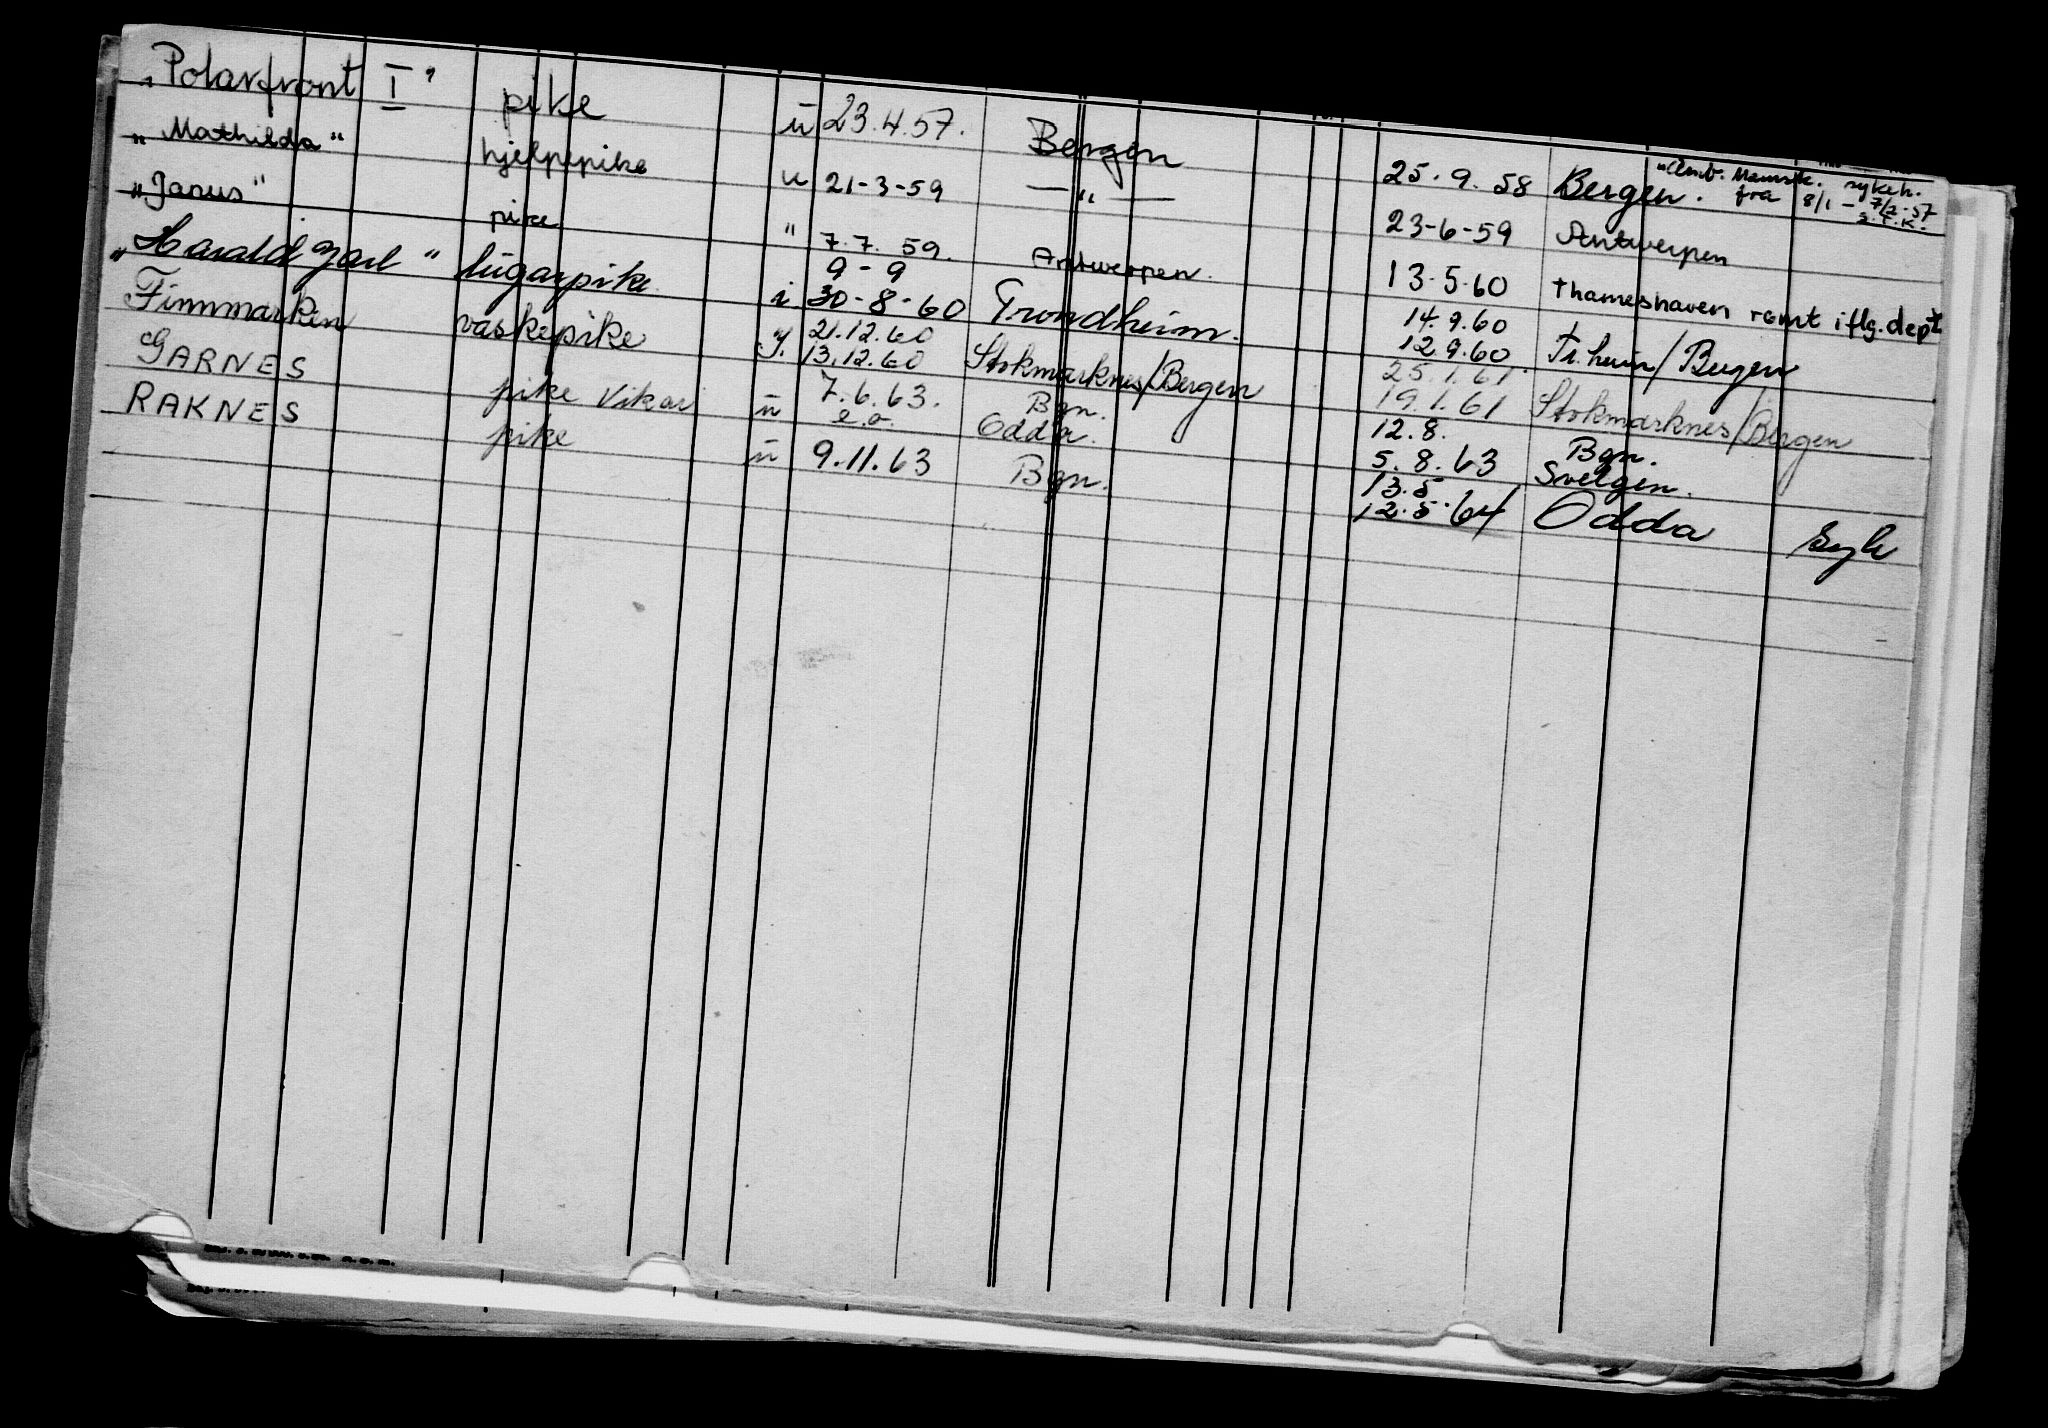 "Polarfront I" pike ū 23.4.57. Bergen 25.9.58 Bergen. fra 8/1 - 7/2-57
"Mathilda" hjelpepike u 21-3-59 — " — 23-6-59 Antwerpen
"Janus" pike " 7.7.59. Antwerpen. 13.5.60 Thameshaven rømt iflg. dept
9-9 14.9.60
"Harald Jarl" lugarpike i 30-8-60 Trondheim. 12.9.60 Tr.heim/Bergen
21.12.60 25.1.61
Finnmarken vaskepike y. 13.12.60 Stokmarknes/Bergen 19.1.61 Stokmarknes/Bergen
7.6.63. Bgn. 12.8. Bgn.
GARNES pike vikar ū e.o. Odda. 5.8.63 Svelgen.
13.5
RAKNES pike ū 9.11.63 Bgn. 12.5.64 Odda Syk